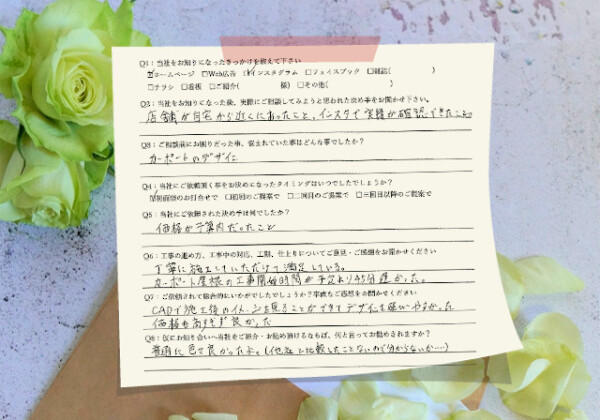 Q1：当社をお知りになったきっかけを教えて下さい
☑ホームページ □Web広告 ☑インスタグラム □フェイスブック □雑誌( )
□チラシ □看板 □ご紹介( 様) □その他( )
Q2：当社をお知りになった後、実際にご相談してみようと思われた決め手をお聞かせ下さい。
店舗が自宅から近くにあったこと、インスタで実績が確認できたこと。
Q3：ご相談前にお困りだった事、悩まれていた事はどんな事でしたか？
カーポートのデザイン
Q4：当社にご依頼頂く事をお決めになったタイミングはいつでしたでしょうか？
☑初回のお打合せで □初回のご提案で □二回目のご提案で □三回目以降のご提案で
Q5：当社にご依頼された決め手は何でしたか？
価格が予算内だったこと
Q6：工事の進め方、工事中の対応、工期、仕上りについてご意見・ご感想をお聞かせください
丁寧に施工していただけて満足している。
カーポート屋根の工事開始時間が予定より45分遅かった。
Q7：ご依頼されて総合的にいかがでしたでしょうか？率直なご感想をお聞かせください
CADで施工後のイメージを見ることができてデザインを選びやすかった
価格も高すぎず良かった
Q8：仮にお知り合いへ当社をご紹介・お勧め頂けるならば、何と言ってお勧めされますか？
普通に 良かったよ。(他社と比較したことないので分からないが……)